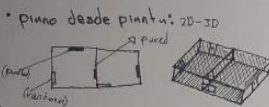 • plano desde planta: 2D-3D
pared
(puerta)
(ventana)